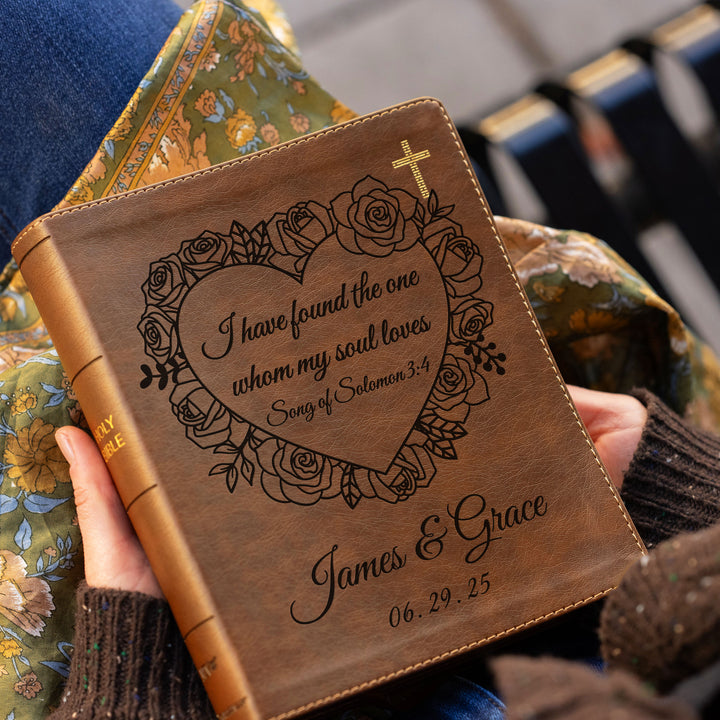 I have found the one
whom my soul loves
Song of Solomon 3:4
James & Grace
06.29.25
HOLY
BIBLE